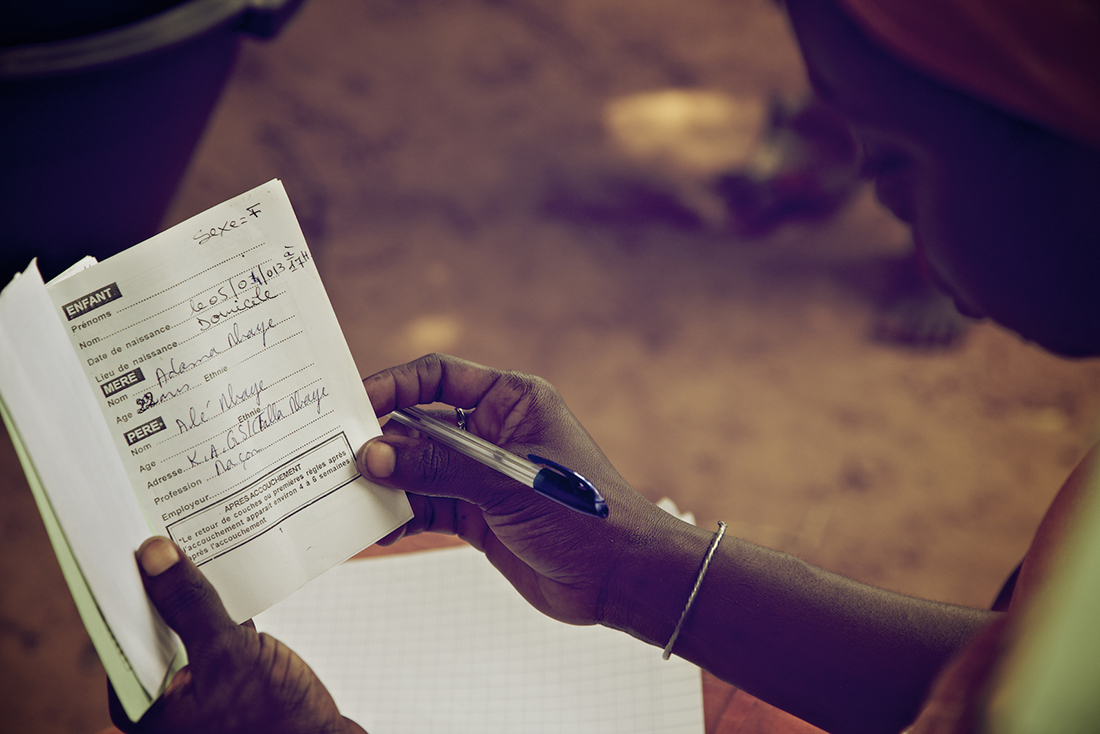 Sexe = F
ENFANT
Prénoms
Nom
Date de naissance le 05/01/013 à 17H
Lieu de naissance Domicile
MERE
Nom Adama Mbaye
Age 22 ans Ethnie
PERE
Nom Alé Mbaye
Age Ethnie
Adresse Mbaye
Profession Maçon
Employeur
APRES ACCOUCHEMENT
"Le retour de couches ou premières règles après
l'accouchement apparait environ 4 à 6 semaines
après l'accouchement